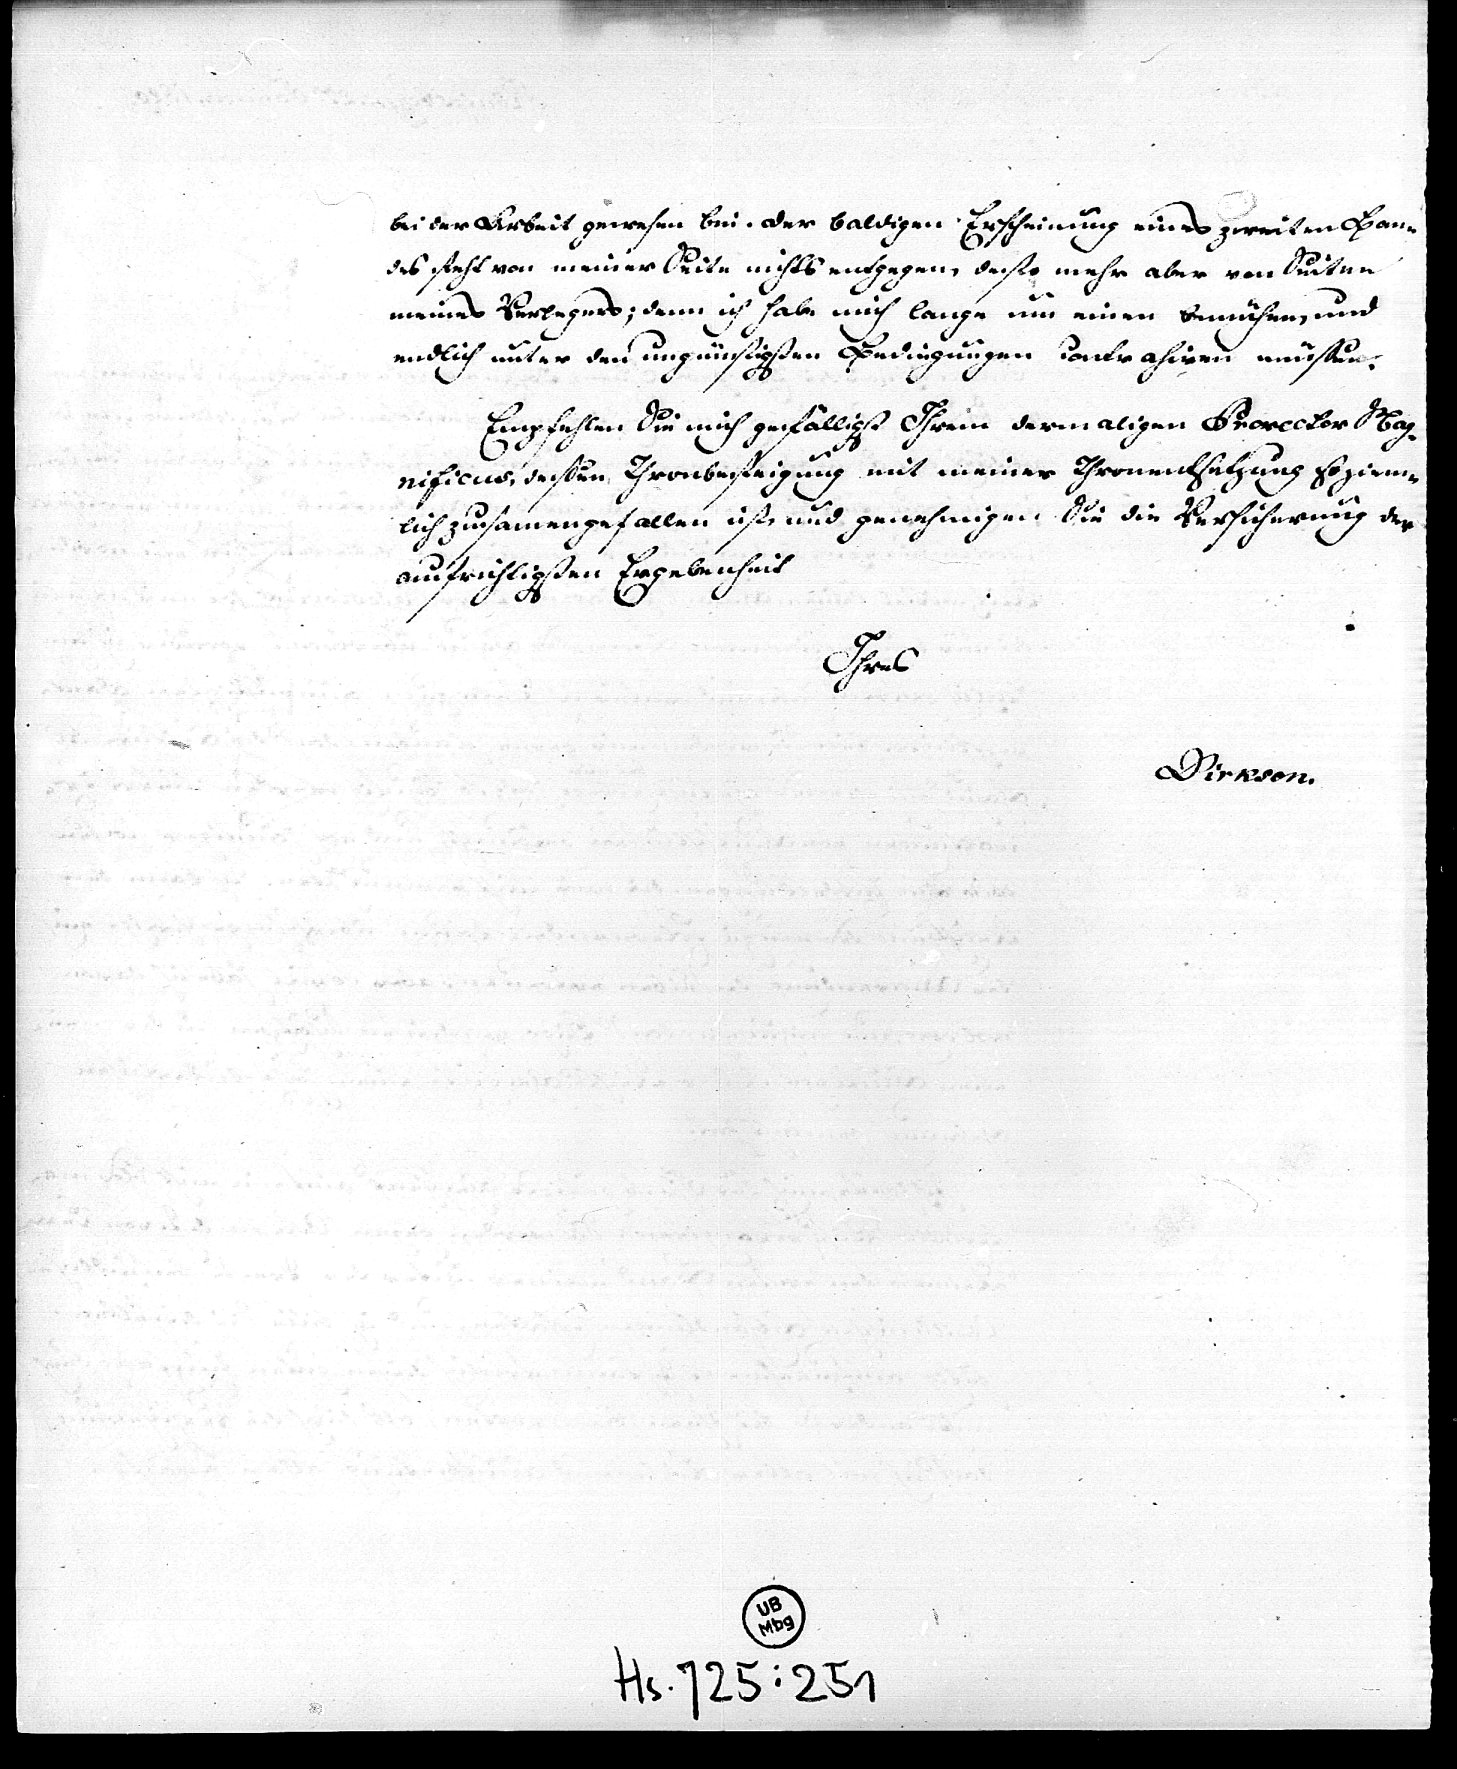 bei der Arbeit gewesen bin. Der baldigen Erscheinung eines zweiten Ban-
des steht von meiner Seite nichts entgegen, desto mehr aber von Seiten
meines Verlegers; denn ich habe mich lange um einen bemühen, und
endlich unter den ungünstigsten Bedingungen contrahiren müssen.
Empfehlen Sie mich gefälligst Ihrem dermaligen Prorector Mag-
nificus, dessen Thronbesteigung mit meiner Thronentsetzung so ziem-
lich zusamengefallen ist, und genehmigen Sie die Versicherung der
aufrichtigsten Ergebenheit
Ihres
Dirksen.
UB
Mbg
Hs. 725:251